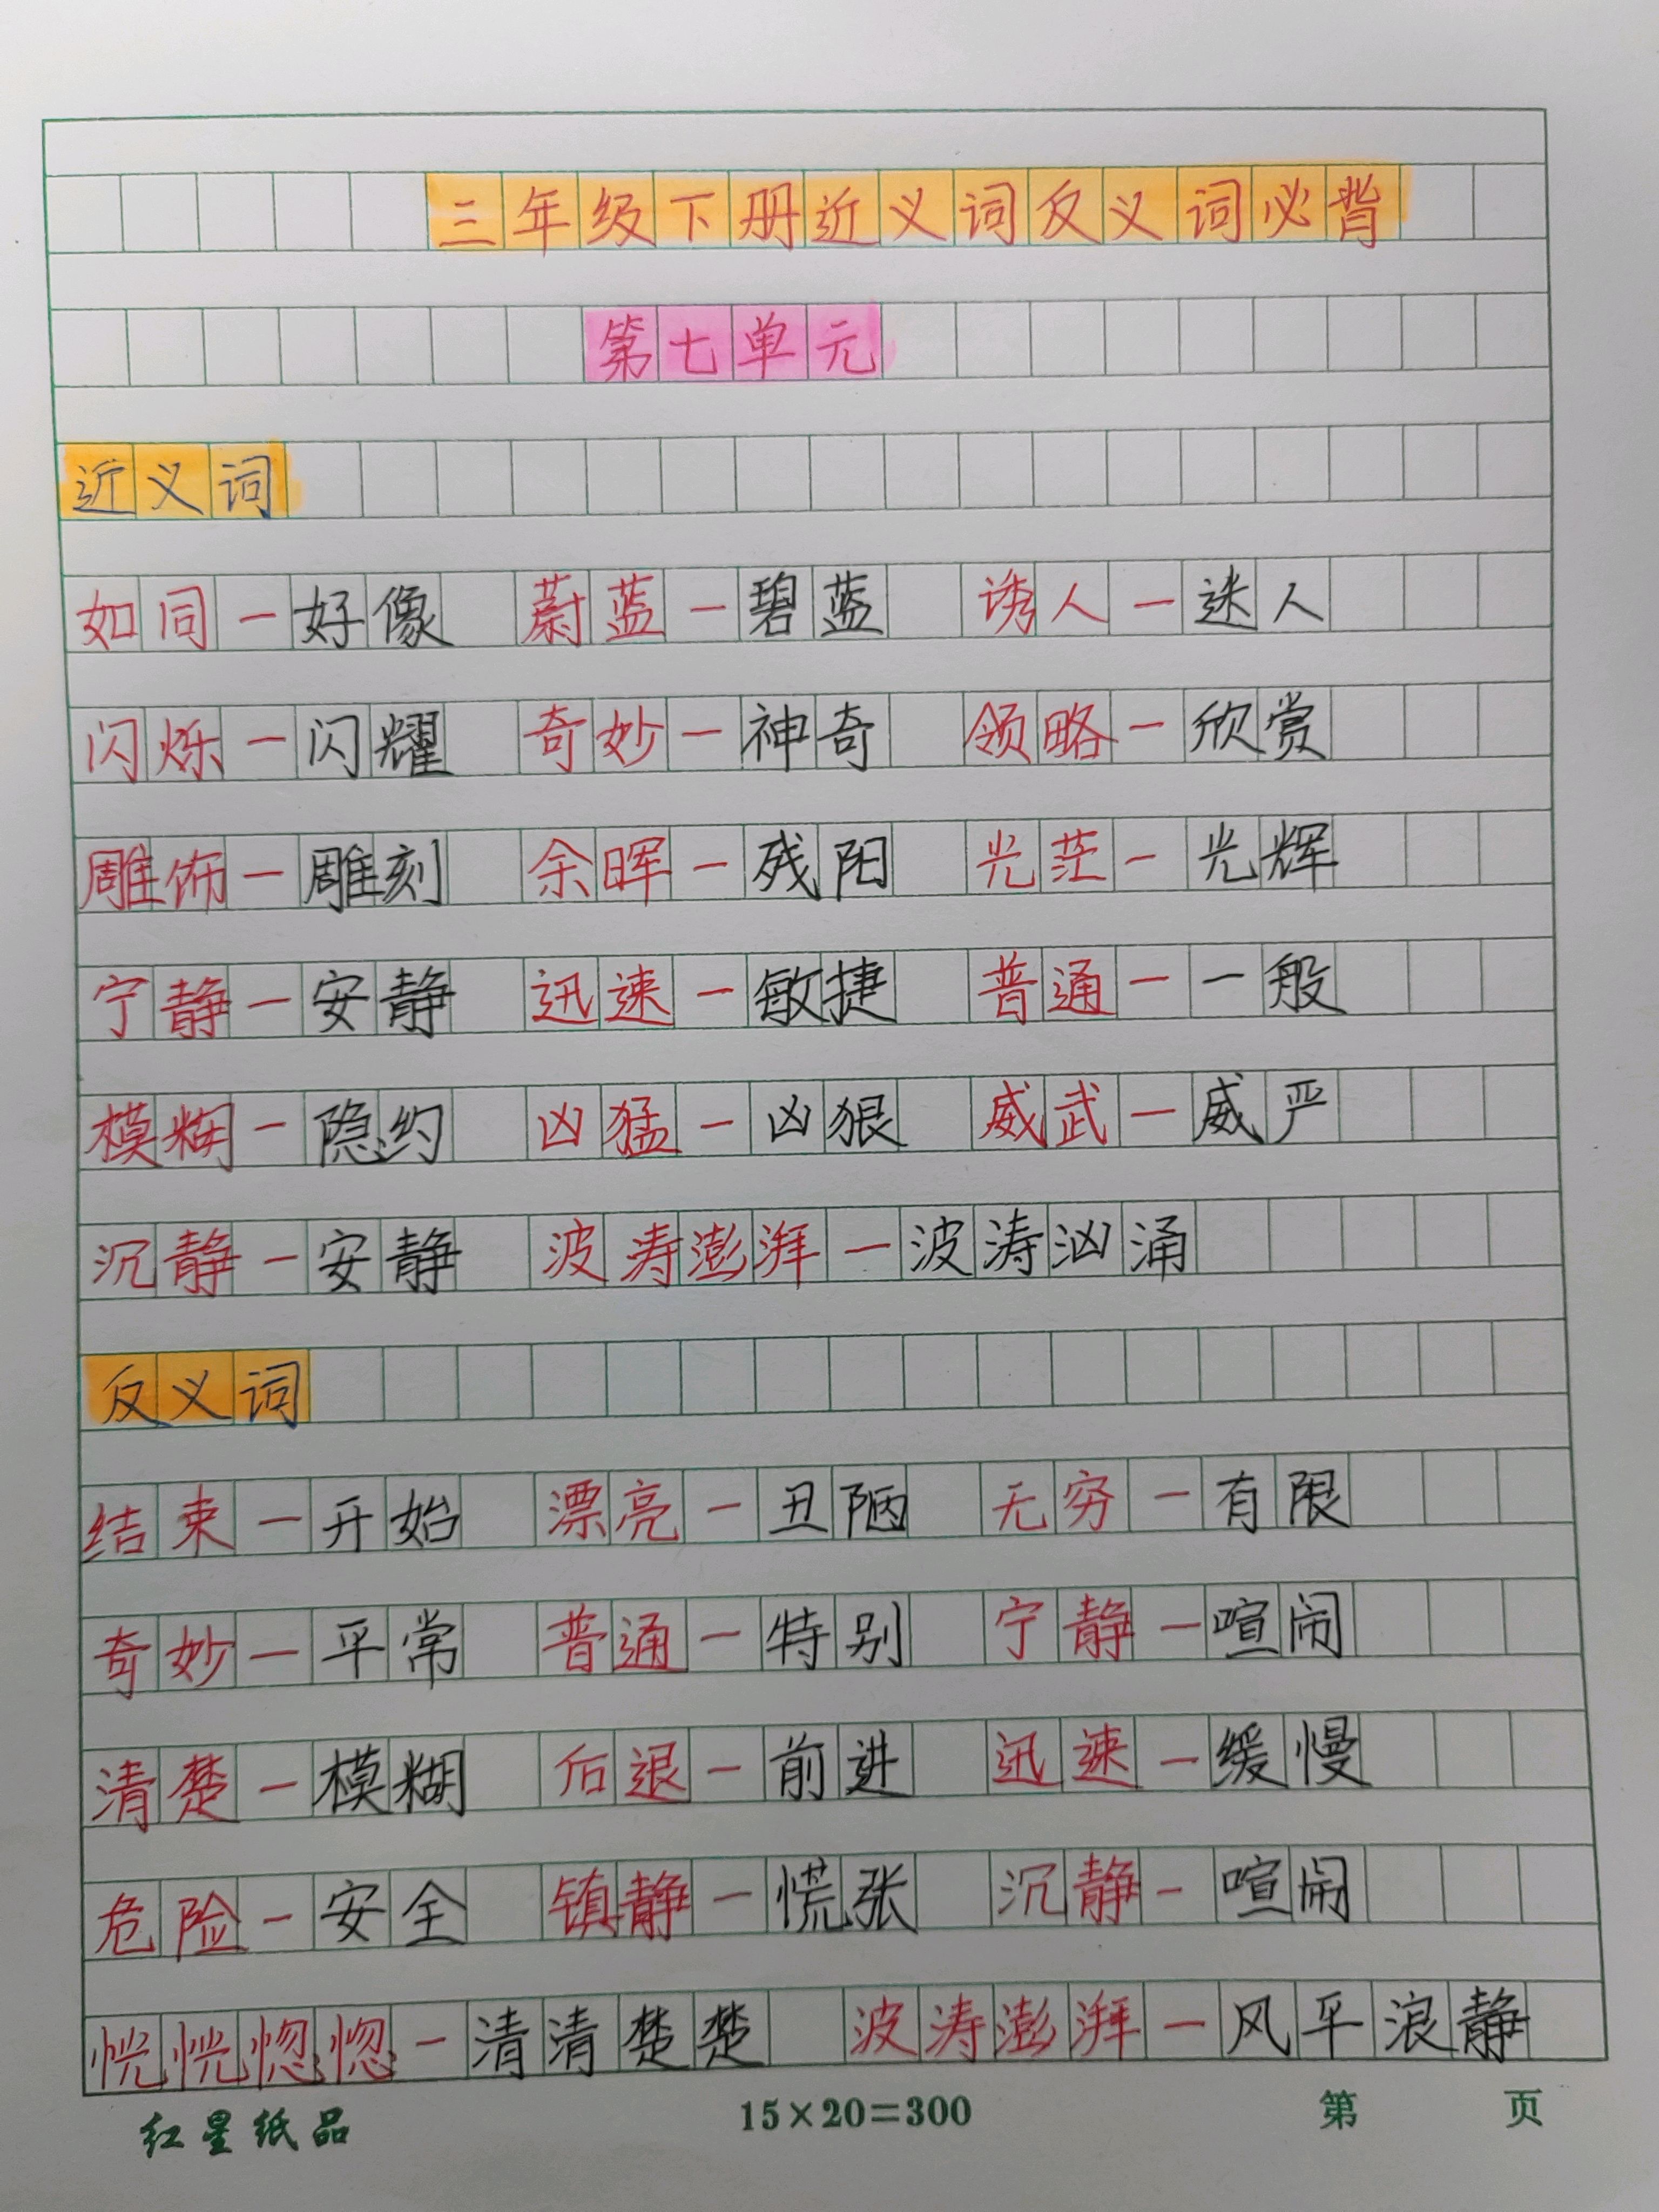 三年级下册近义词反义词必背
第七单元
近义词
如同一好像 蔚蓝一碧蓝 诱人一迷人
闪烁一闪耀 奇妙一神奇 领略一欣赏
雕饰一雕刻 余晖一残阳 光茫一光辉
宁静一安静 迅速一敏捷 普通一一般
模糊一隐约 凶猛一凶狠 威武一威严
沉静一安静 波涛澎湃一波涛汹涌
反义词
结束一开始 漂亮一丑陋 无穷一有限
奇妙一平常 普通一特别 宁静一喧闹
清楚一模糊 后退一前进 迅速一缓慢
危险一安全 镇静一慌张 沉静一喧闹
恍恍惚惚一清清楚楚 波涛澎湃一风平浪静
红星纸品 15×20=300 第 页